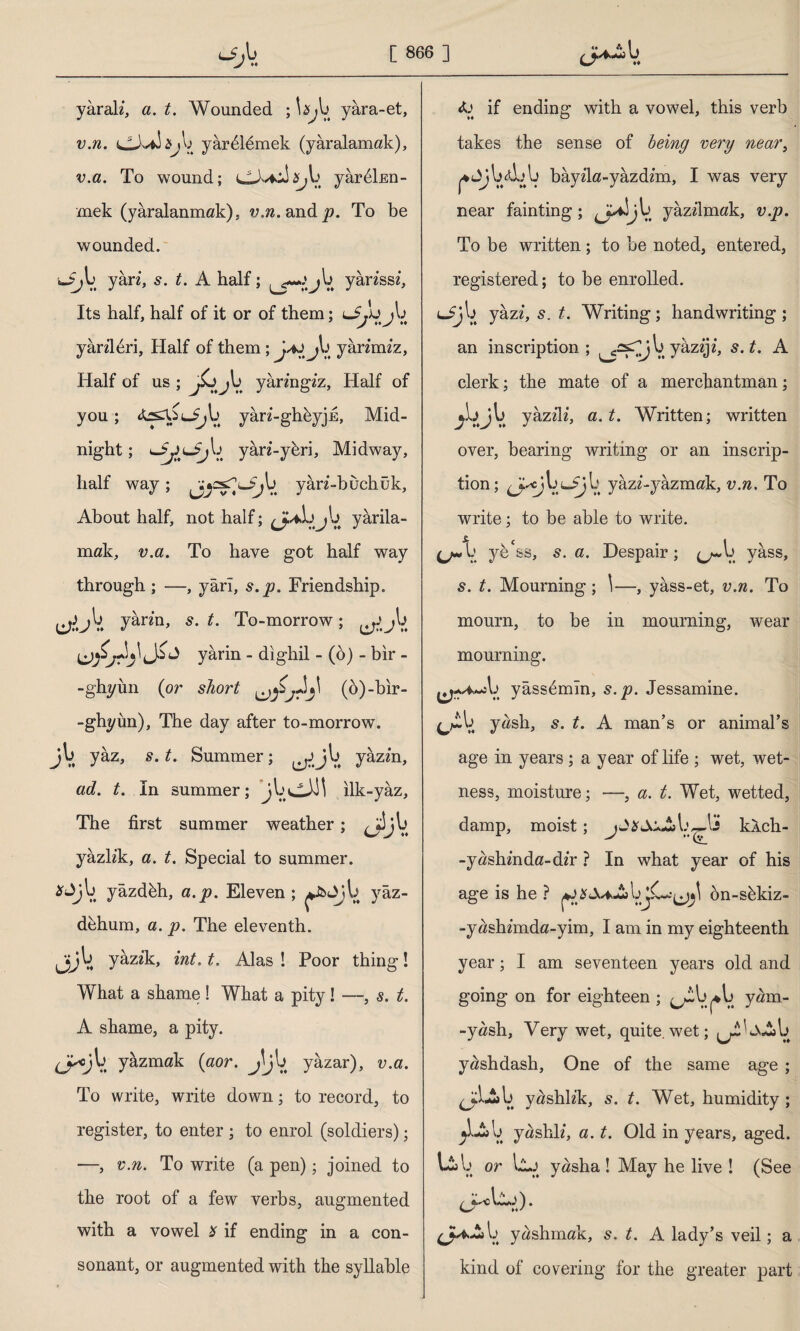 يارى [ 866 ] ياشمق
yàrali, a. t. Wounded ; يارهـا yàra-et,
v.n. ياره‌لمك yàrélémek (yàralamak),
v.a. To wound; ياره‌لنمك yàrélEn-
mek (yàralanmak), v.n. and p. To be
wounded.
يارى yàri, s. t. A half ; ياريسى yàrissi,
Its half, half of it or of them; ياريلرى
yàriléri, Half of them ; ياريمز yàrimiz,
Half of us ; ياريڭز yàringiz, Half of
you ; يارى كيجه yàri-ghèyjE, Mid-
night ; يارى يرى yàri-yèri, Midway,
half way ; يارى بچوق yàri-bùchùk,
About half, not half; ياريلمق yàrila-
mak, v.a. To have got half way
through ; —, yārī, s.p. Friendship.
يارين yàrin, s. t. To-morrow ; يارين
دكل اوبركون yàrin - dìghil - (ò) - bìr -
-ghyùn (or short اوبركون (ò)-bìr-
-ghyùn), The day after to-morrow.
ياز yàz, s. t. Summer ; يازين yàzin,
ad. t. In summer ; ايلك ياز ìlk-yàz,
The first summer weather ; يازلق
yàzlik, a. t. Special to summer.
يازده yāzdèh, a.p. Eleven ; يازدهم yāz-
dèhum, a. p. The eleventh.
يازق yàzik, int. t. Alas ! Poor thing !
What a shame ! What a pity ! —, s. t.
A shame, a pity.
يازمق yàzmak (aor. يازار yàzar), v.a.
To write, write down ; to record, to
register, to enter ; to enrol (soldiers) ;
—, v.n. To write (a pen) ; joined to
the root of a few verbs, augmented
with a vowel ه if ending in a con-
sonant, or augmented with the syllable
يه if ending with a vowel, this verb
takes the sense of being very near,
بايله يازدم bàyila-yàzdim, I was very
near fainting ; يازلمق yàzilmak, v.p.
To be written ; to be noted, entered,
registered ; to be enrolled.
يازى yàzi, s. t. Writing ; handwriting ;
an inscription ; يازيجى yàziji, s. t. A
clerk ; the mate of a merchantman ;
يازيلو yàzili, a. t. Written ; written
over, bearing writing or an inscrip-
tion ; يازى يازمق yàzi-yàzmak, v.n. To
write ; to be able to write.
يأس yè'ss, s. a. Despair ; ياس yàss,
s. t. Mourning ; —ا, yàss-et, v.n. To
mourn, to be in mourning, wear
mourning.
ياسمين yāssémīn, s.p. Jessamine.
ياش yàsh, s. t. A man's or animal's
age in years ; a year of life ; wet, wet-
ness, moisture ; —, a. t. Wet, wetted,
damp, moist ; قاچ ياشنده‌در kàch-
-yàshinda-dir ? In what year of his
age is he ? اون سكز ياشمده‌يم òn-sèkiz-
-yàshimda-yim, I am in my eighteenth
year ; I am seventeen years old and
going on for eighteen ; يام ياش yàm-
-yàsh, Very wet, quite wet ; ياشداش
yàshdash, One of the same age ;
ياشلق yàshlik, s. t. Wet, humidity ;
ياشلو yàshli, a. t. Old in years, aged.
ياشا or يشا yàsha ! May he live ! (See
يشامق).
ياشمق yàshmak, s. t. A lady's veil ; a
kind of covering for the greater part